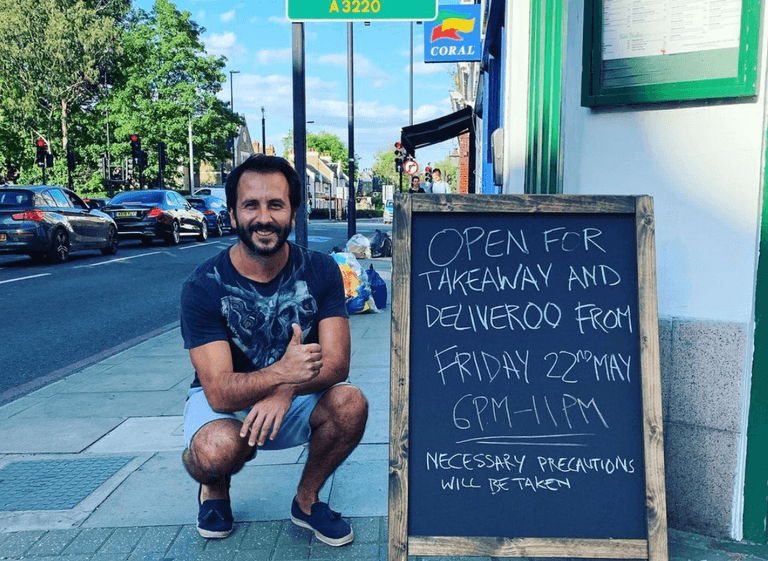 A3220
CORAL
OPEN FOR
TAKEAWAY AND
DELIVEROO FROM
FRIDAY 22ND MAY
6PM-11PM
NECESSARY PRECAUTIONS
WILL BE TAKEN